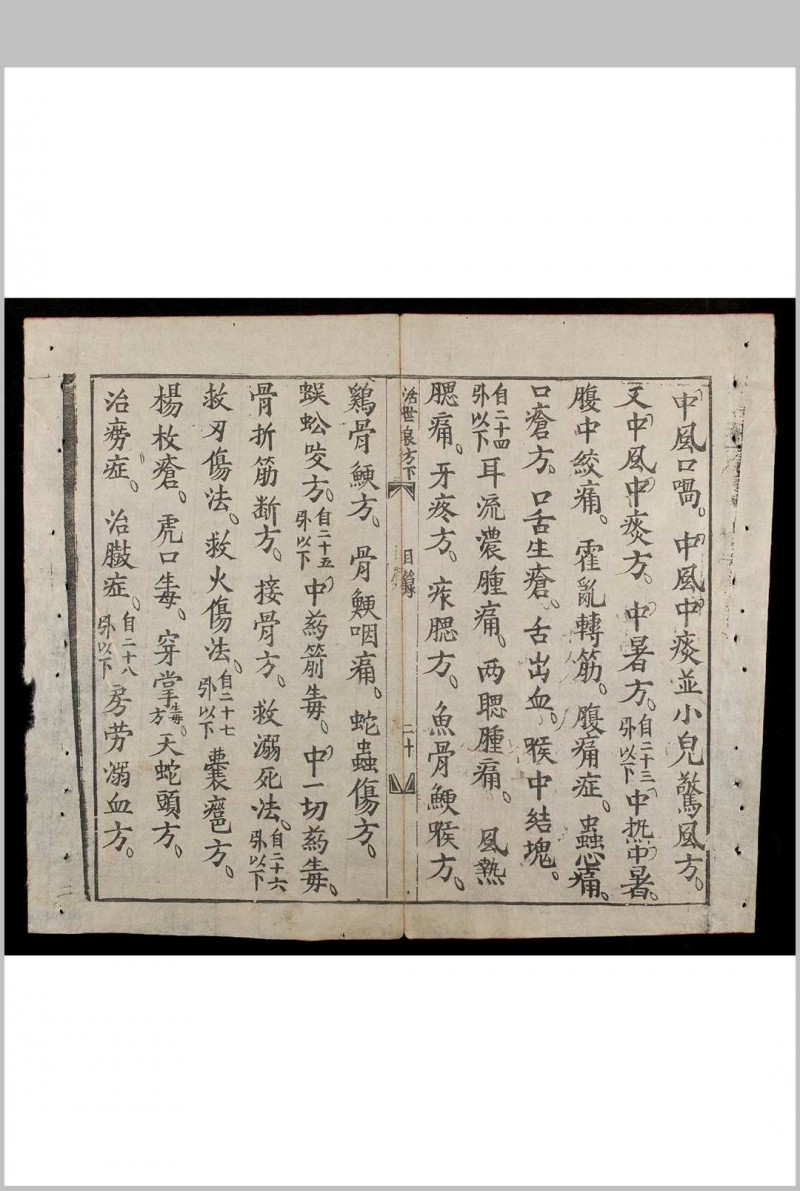 中風口喎。中風中痰並小兒驚風方。
又中風中痰方。中暑方。自二十三卟以下中热中暑。
腹中絞痛。霍亂轉筋。腹痛症。蟲心痛。
口瘡方。口舌生瘡。舌出血。喉中結塊。
自二十四卟以下耳流濃腫痛。两聦腫痛。風熱
腮痛。牙疼方。疾腮方。魚骨鯁喉方。
活世良方下 目錄 二十
鷄骨鯁方。骨鯁咽痛。蛇蟲傷方。
蜈蚣咬方。自二十五卟以下中葯箭毒。中一切葯毒。
骨折筋断方。接骨方。救溺死法。自二十六卟以下
救刃傷法。救火傷法。自二十七卟以下囊癰方。
楊枚瘡。虎口毒。穿掌毒方。天蛇頭方。
治癆症。治臌症。自二十八卟以下房劳溺血方。